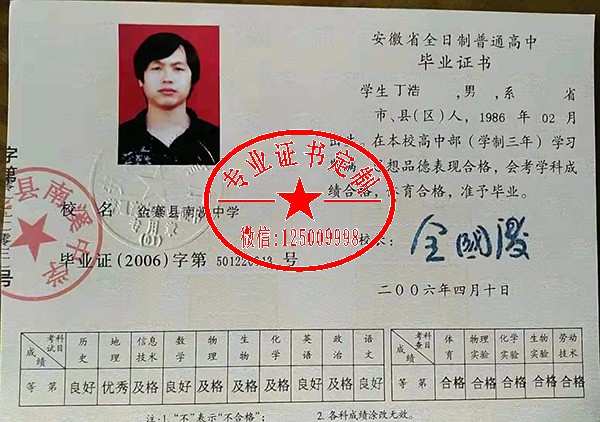 安徽省全日制普通高中
毕业证书
学生 丁浩 ,男,系 省
市、县(区)人, 1986 年 02 月
出生, 在本校高中部(学制三年)学习
期满, 思想品德表现合格, 会考学科成
绩合格, 体育合格, 准予毕业。
校 名 金寨县南溪中学
校长:
毕业证(2006)字第 号
二〇〇六年四月十日
县南溪中学
专用章
(01)
专业证书定制
微信:125009998
字第
号
考试科目 历史 地理 信息技术 数学 物理 生物 化学 英语 政治 语文
成绩
等 第 良好 优秀 及格 良好 及格 及格 及格 良好 及格 良好
考查科目 体育 物理实验 化学实验 生物实验 劳动技术
成绩
等 第 合格 合格 合格 合格 合格
注:1.“不”表示“不合格”; 2.各科成绩涂改无效。